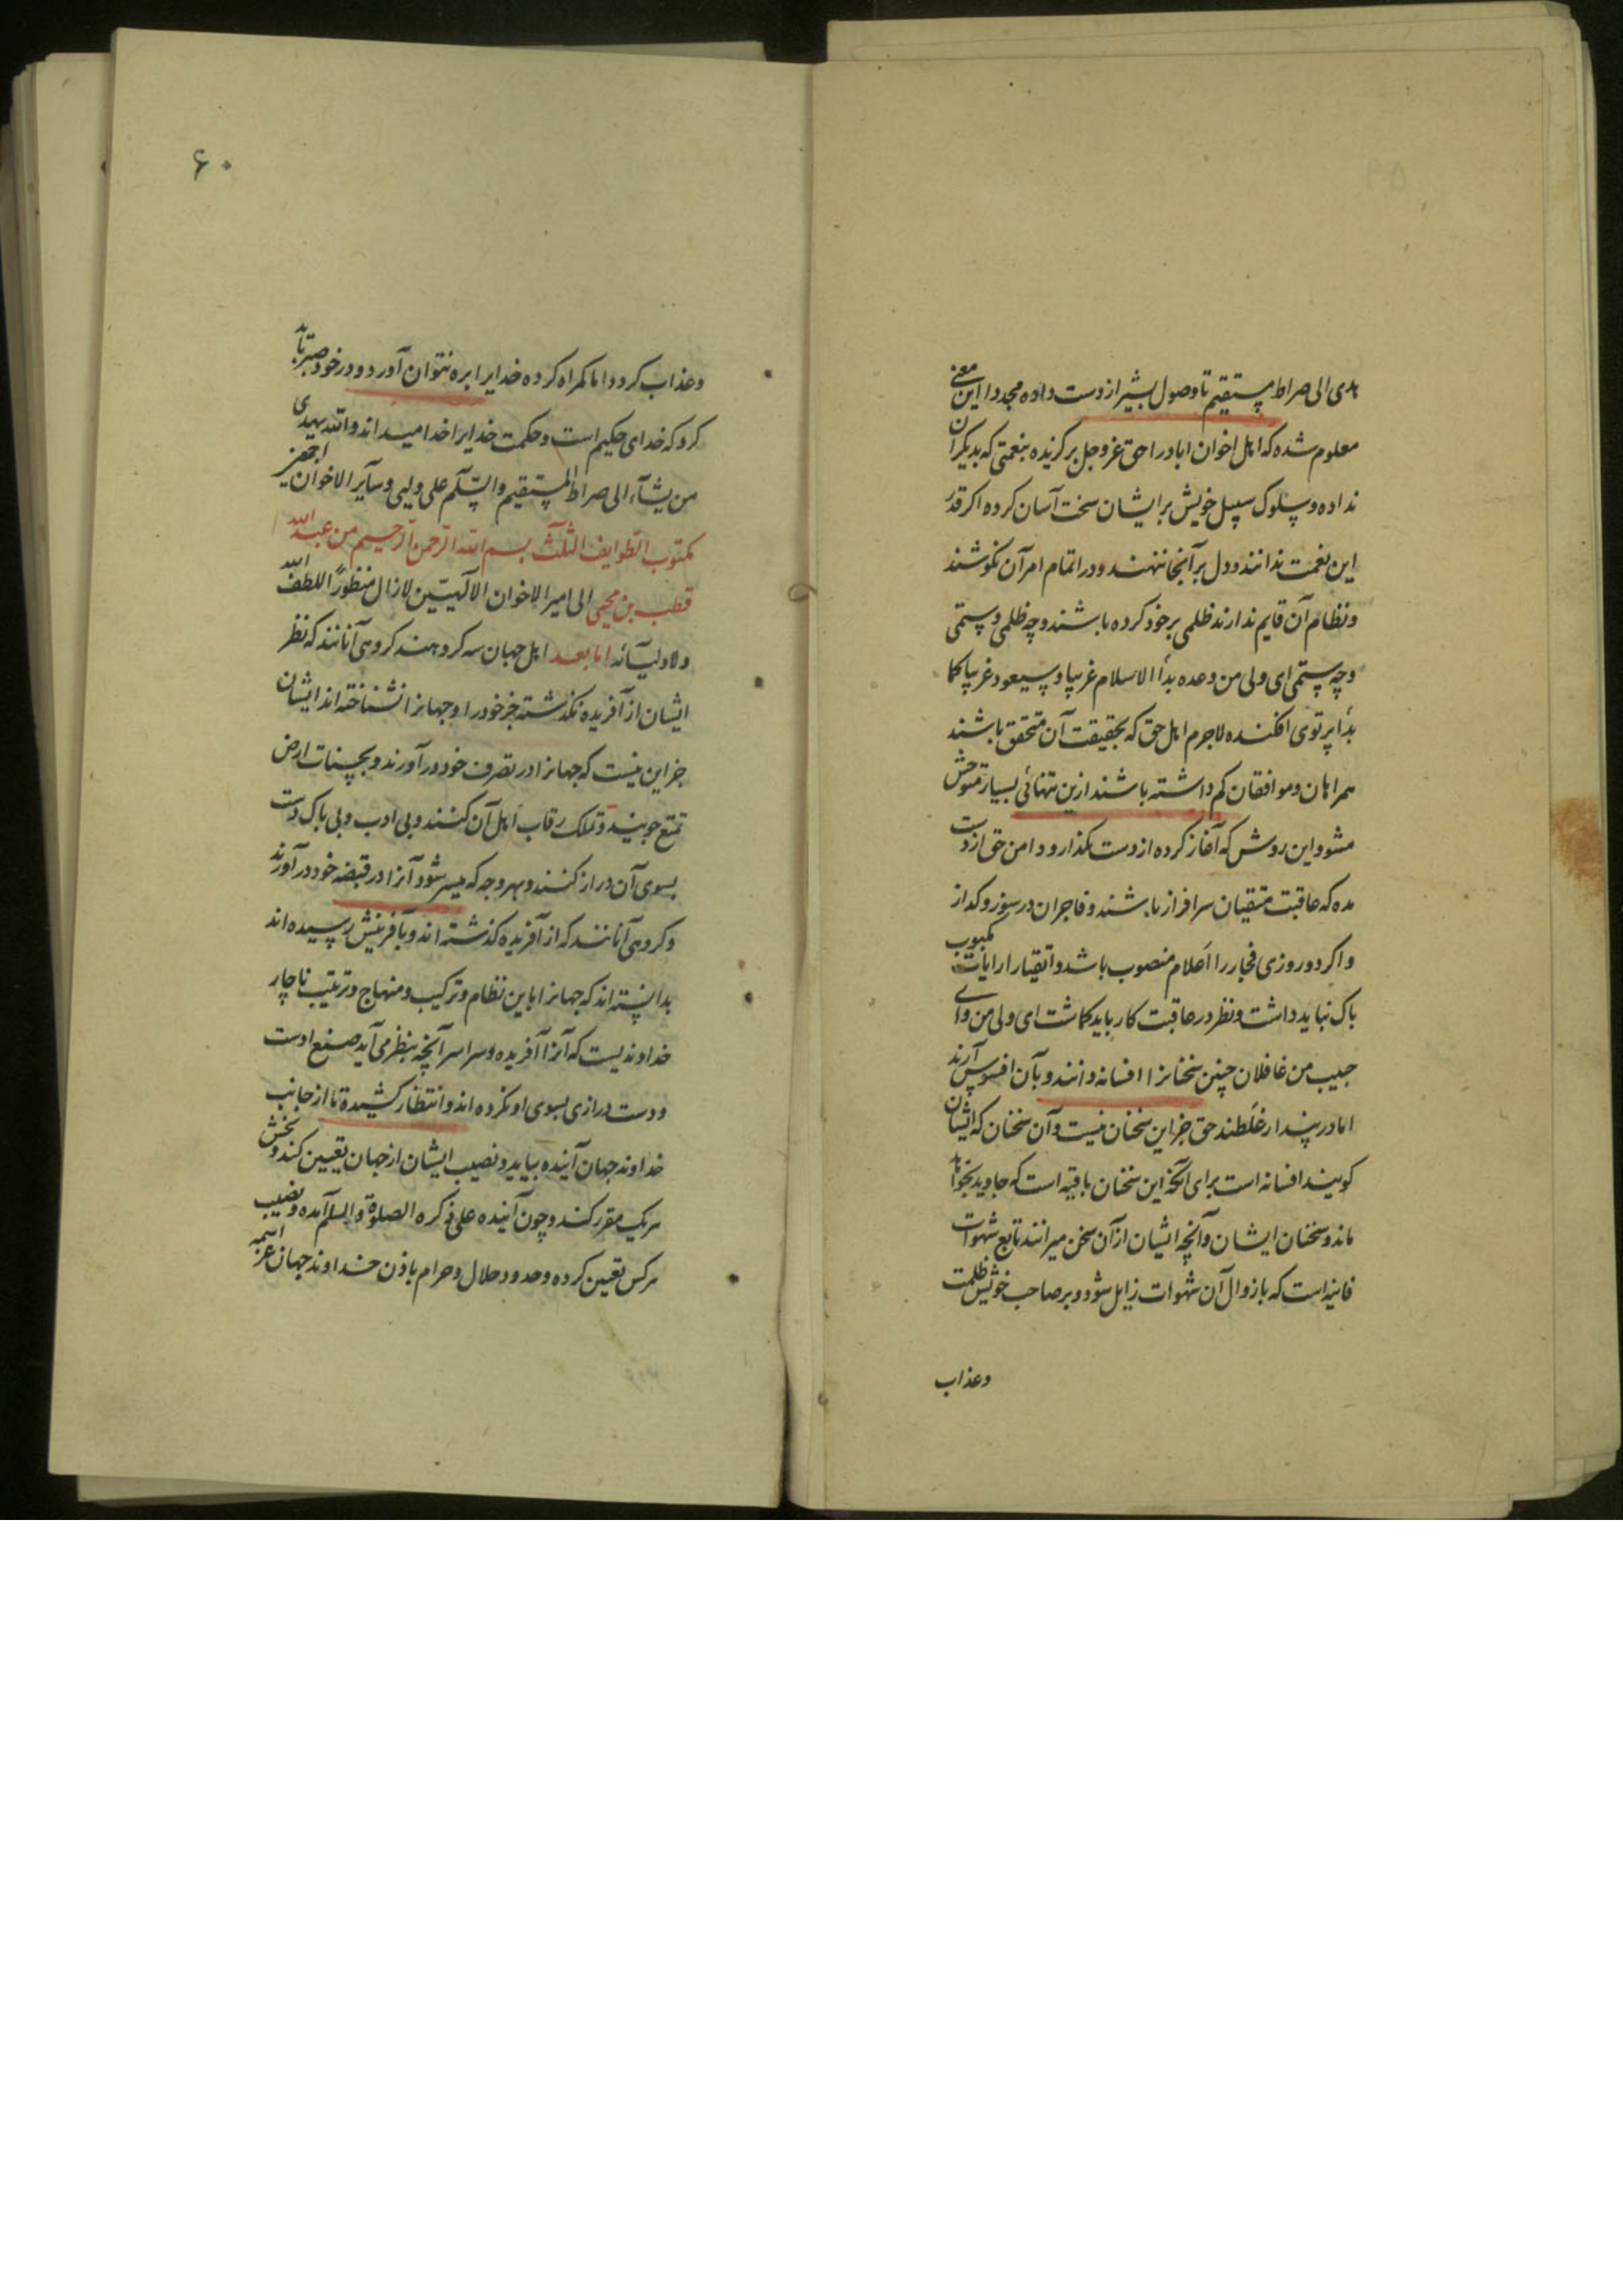 هدی الی صراط مستقیم تا وصول بشیر از دست داده مجددا این معنی
معلوم شده که اهل اخوان اباد را حق عز و جل برگزیده بنعمتی که بدیگران
نداده و سلوک سبیل خویش بر ایشان سخت آسان کرده اگر قدر
این نعمت ندانند و دل بر آنجا ننهند و در اتمام امر آن نکوشند
و نظام آن قایم ندارند ظلمی بر خود کرده باشند و چه ظلمی و ستمی
و چه ستمی ای ولی من وعده بدأ الاسلام غریبا و سیعود غریبا کما
بدأ پرتوی افکنده لاجرم اهل حق که بحقیقت آن متحقق باشند
همراهان و موافقان کم داشته باشند ازین تنهائی بسیار متوحش
مشو و این روش که آغاز کرده از دست مگذار و دامن حق از دست
مده که عاقبت متقیان سرافراز باشند و فاجران در سوز و گداز
و اگر دو روزی فجار را اعلام منصوب باشد و اتقیا را رایات مکبوب
باک نباید داشت و نظر در عاقبت کار باید گماشت ای ولی من و ای
حبیب من غافلان چنین سخنانرا افسانه دانند و بآن افسوس آرند
اما در پندار غلطند حق جز این سخنان نیست و آن سخنان که ایشان
کویند افسانه است برای آنکه این سخنان باقیه است که جاوید بخواهد
ماند و سخنان ایشان و آنچه ایشان از آن سخن میرانند تابع شهوات
فانیه است که بازوال آن شهوات زایل شود و بر صاحب خویش ظلمت
وعذاب
۶۰
وعذاب کردد اما کمراه کرده خدایرا براه نتوان آورد و در خود صبر باید
کرد که خدای حکیم است و حکمت خدایرا خدا میداند والله یهدی
من یشآء الی صراط المستقیم والسّلم علی ولیی و سآیر الاخوان اجمعین
مکتوب الطوایف الثلث بسم الله الرحمن الرحیم من عبد الله
قطب بن محیی الی امیر الاخوان الالهیّین لازال منظوراً للطف الله
ولاولیآئه اما بعد اهل جهان سه کروهند کروهی آنانند که نظر
ایشان از آفریده نکذشته جز خود را و جهانرا نشناخته اند ایشان
جز این نیست که جهانرا در تصرف خود درآورند و بحسنات ارض
تمتع جویند و تملک رقاب اهل آن کنند و بی ادب و بی باک دست
بسوی آن دراز کنند و بهر وجه که میسر شود آنرا در قبضه خود درآورند
و کروهی آنانند که از آفریده کذشته اند و بآفرینش رسیده اند
بدانسته اند که جهانرا باین نظام و ترکیب و منهاج و ترتیب ناچار
خداوندیست که آنرا آفریده و سراسر آنچه بنظر می آید صنع اوست
و دست درازی بسوی او نکرده اند و انتظار کشیده تا از جانب
خداوند جهان آینده بیاید و نصیب ایشان از جهان تعیین کند و بخش
هر یک مقرر کند و چون آینده علی ذکره الصلوة والسلم آمده و نصیب
هر کس تعیین کرده و حدود حلال و حرام باذن خداوند جهان عز اسمه